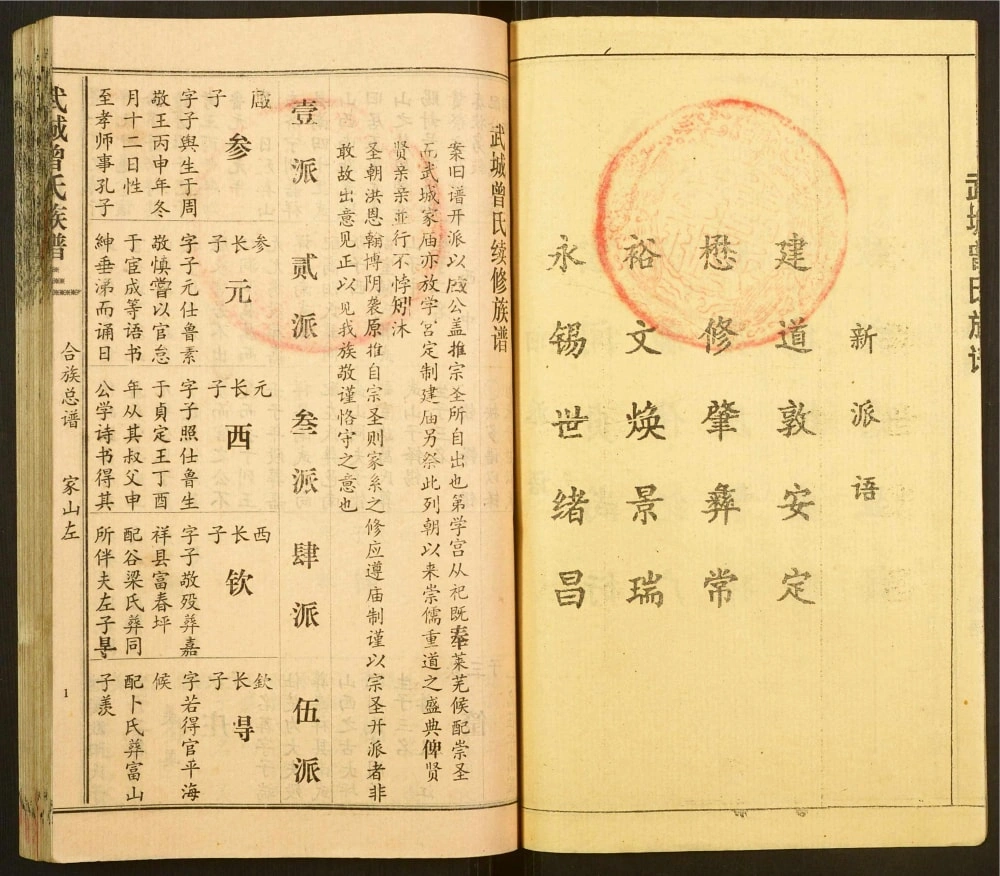 新派语
建道敦安定
懋修肇彝常
裕文焕景瑞
永锡世绪昌
武城曾氏族谱
武城曾氏续修族谱
案旧谱开派以 公盖推宗圣所自出也第学宫从祀既奉莱芜候配崇圣
而武城家庙亦放学宫定制建庙另祭此列朝以来崇儒重道之盛典俾贤
贤亲亲並行不悖矧沐
圣朝洪恩翰博阴袭原推自宗圣则家系之修应遵庙制谨以宗圣开派者非
敢故出意见正以见我族敬谨恪守之意也
壹派 贰派 叁派 肆派 伍派
子 参
字子舆生于周
敬王丙申年冬
月十二日性
至孝师事孔子
参长子 元
字子元仕鲁素
敬慎嘗以官怠
于宦成等语书
紳垂涕而诵日
元长子 西
字子照仕鲁生
于貞定王丁酉
年从其叔父申
公学诗书得其
西长子 钦
字子敬殁葬嘉
祥县富春坪
配谷梁氏葬同
所伴夫左子㝵
欽长子 㝵
字若得官平海
候
配卜氏葬富山
子羨
武城曾氏族谱
合族总谱 家山左
1